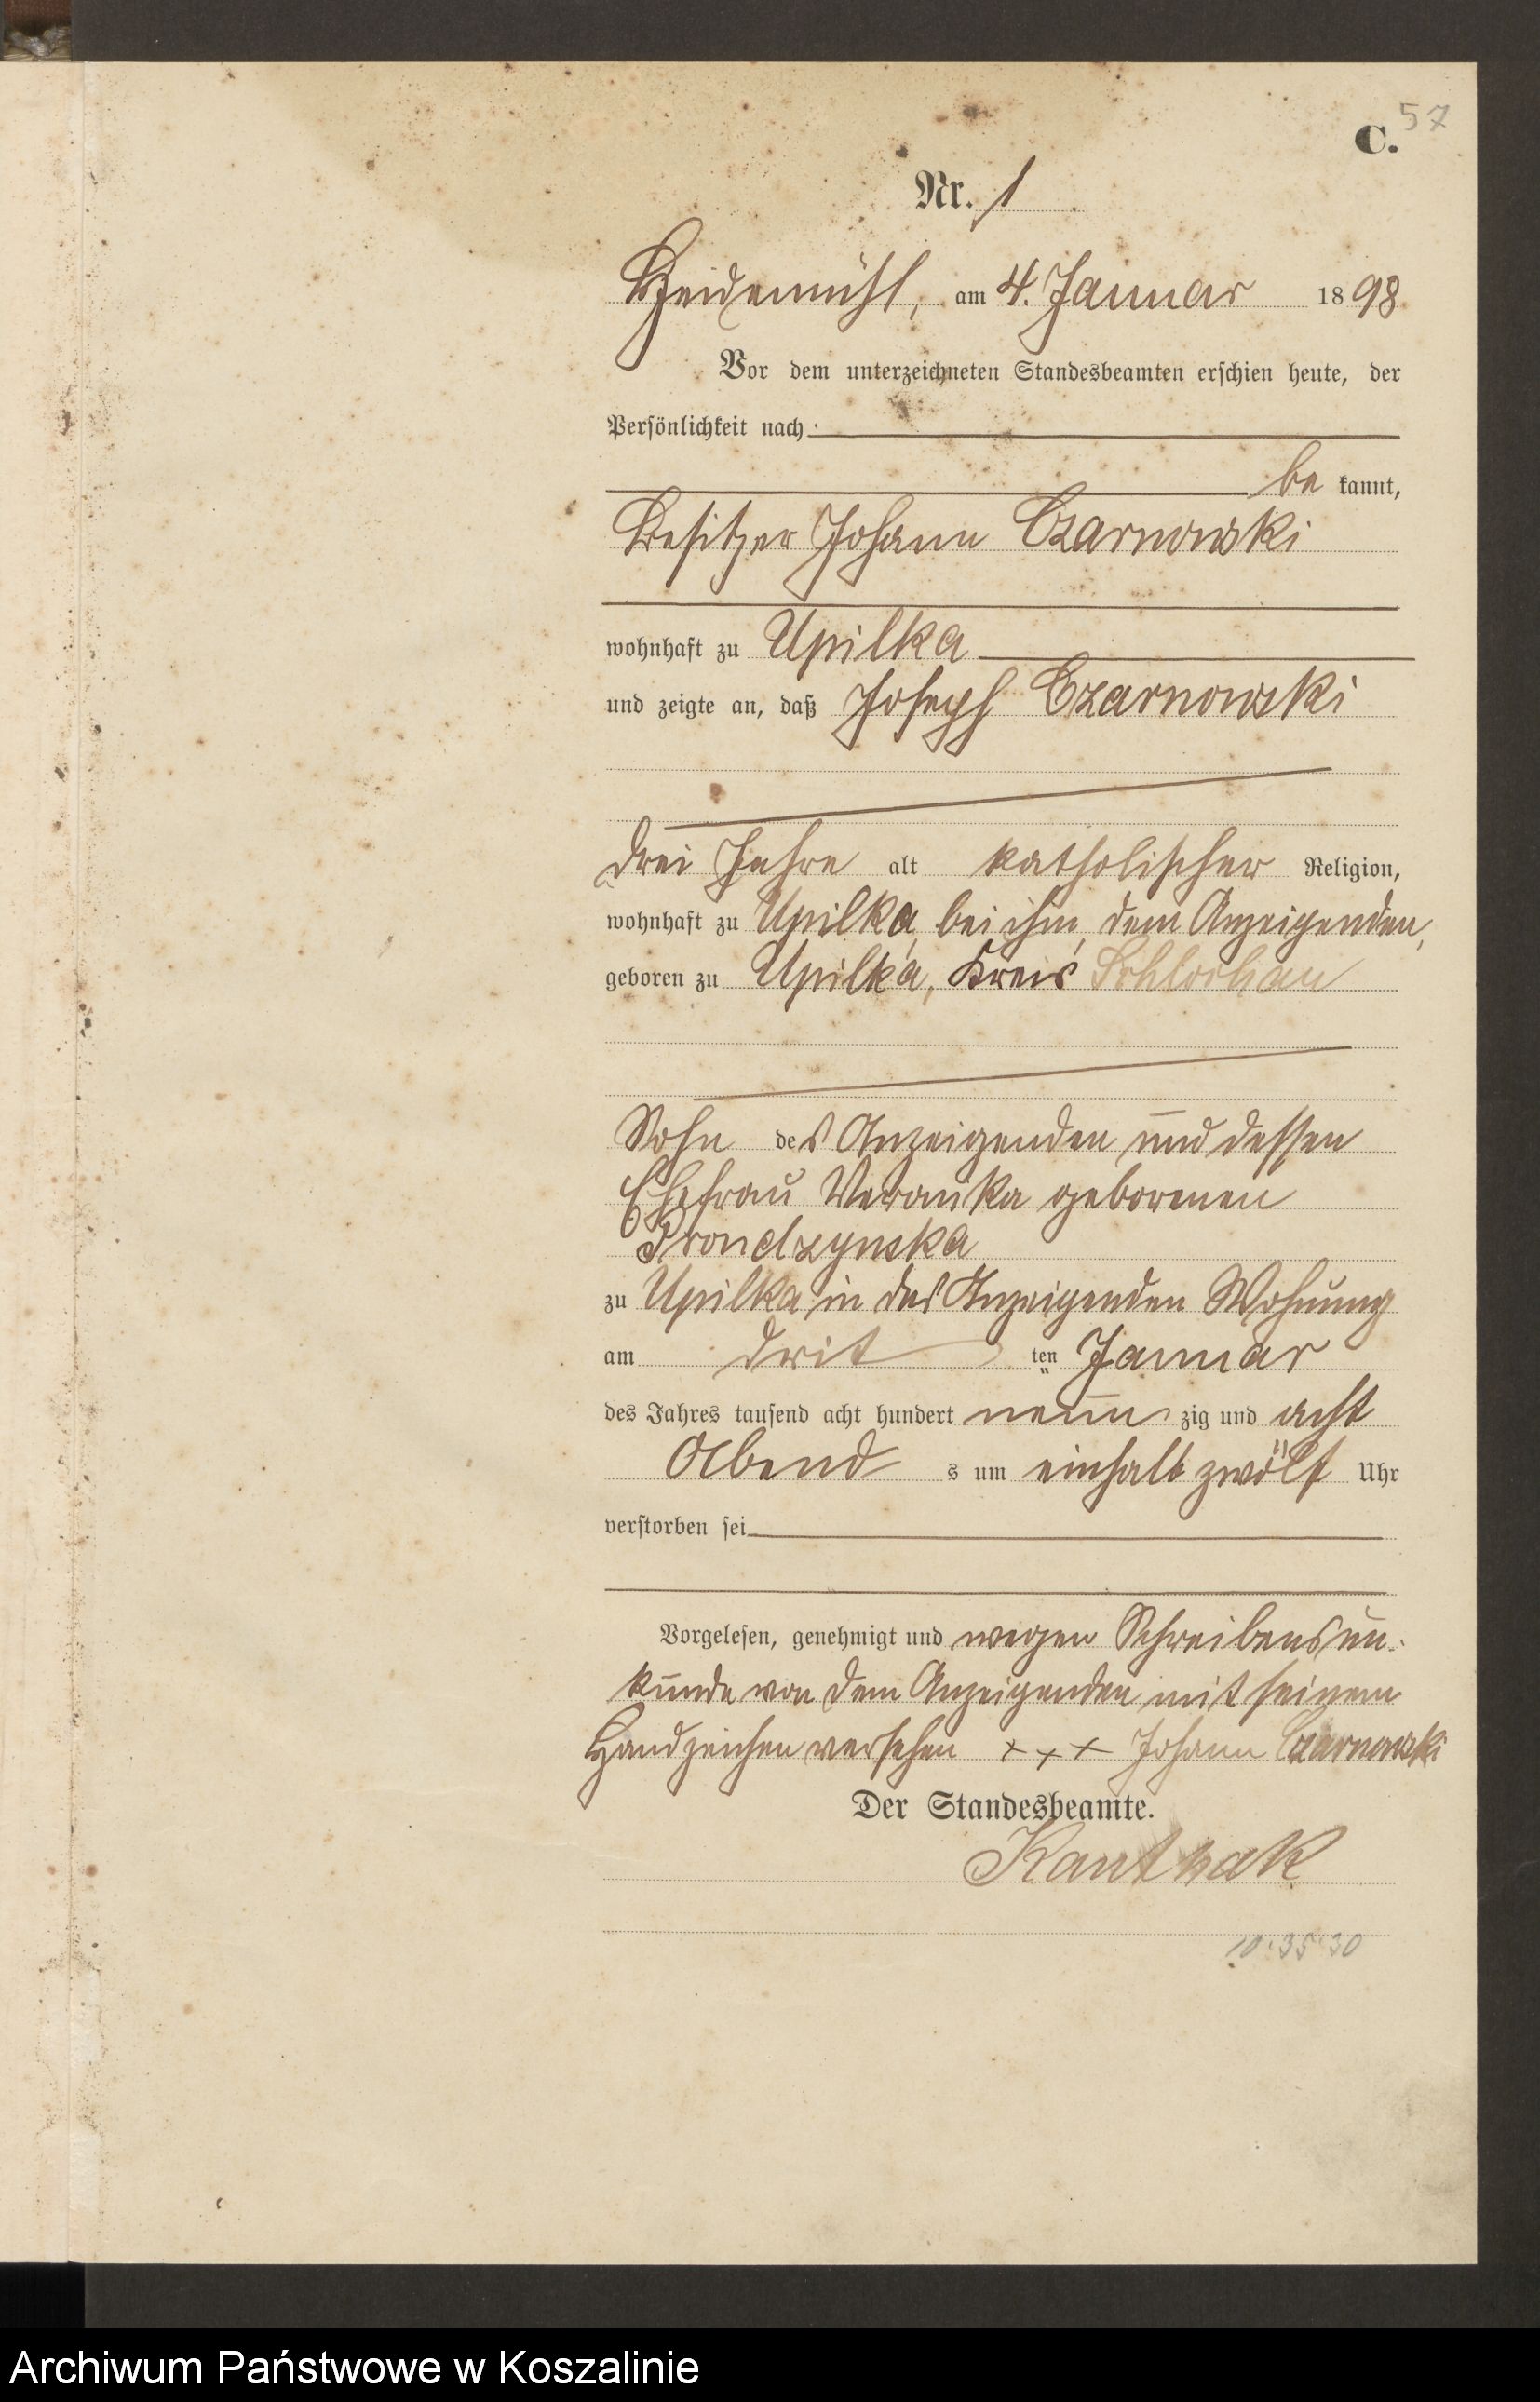 57
C.
Nr. 1
Heidemühl, am 4. Januar 1898
Vor dem unterzeichneten Standesbeamten erschien heute, der
Persönlichkeit nach
be kannt,
Besitzer Johann Czarnowski
wohnhaft zu Upilka
und zeigte an, daß Joseph Czarnowski
drei Jahre alt katholischer Religion,
wohnhaft zu Upilka, bei ihm, dem Anzeigenden,
geboren zu Upilka, Kreis Schlochau
Sohn des Anzeigenden und dessen
Ehefrau Veronika geborenen
Prondzynska
zu Upilka in des Anzeigenden Wohnung
am drit ten Januar
des Jahres tausend acht hundert neun zig und acht
Abend s um einhalb zwölf Uhr
verstorben sei
Vorgelesen, genehmigt und wegen Schreibensun-
kunde von dem Anzeigenden mit seinem
Handzeichen versehen +++ Johann Czarnowski
Der Standesbeamte.
Kanthak
10:35:30
Archiwum Państwowe w Koszalinie